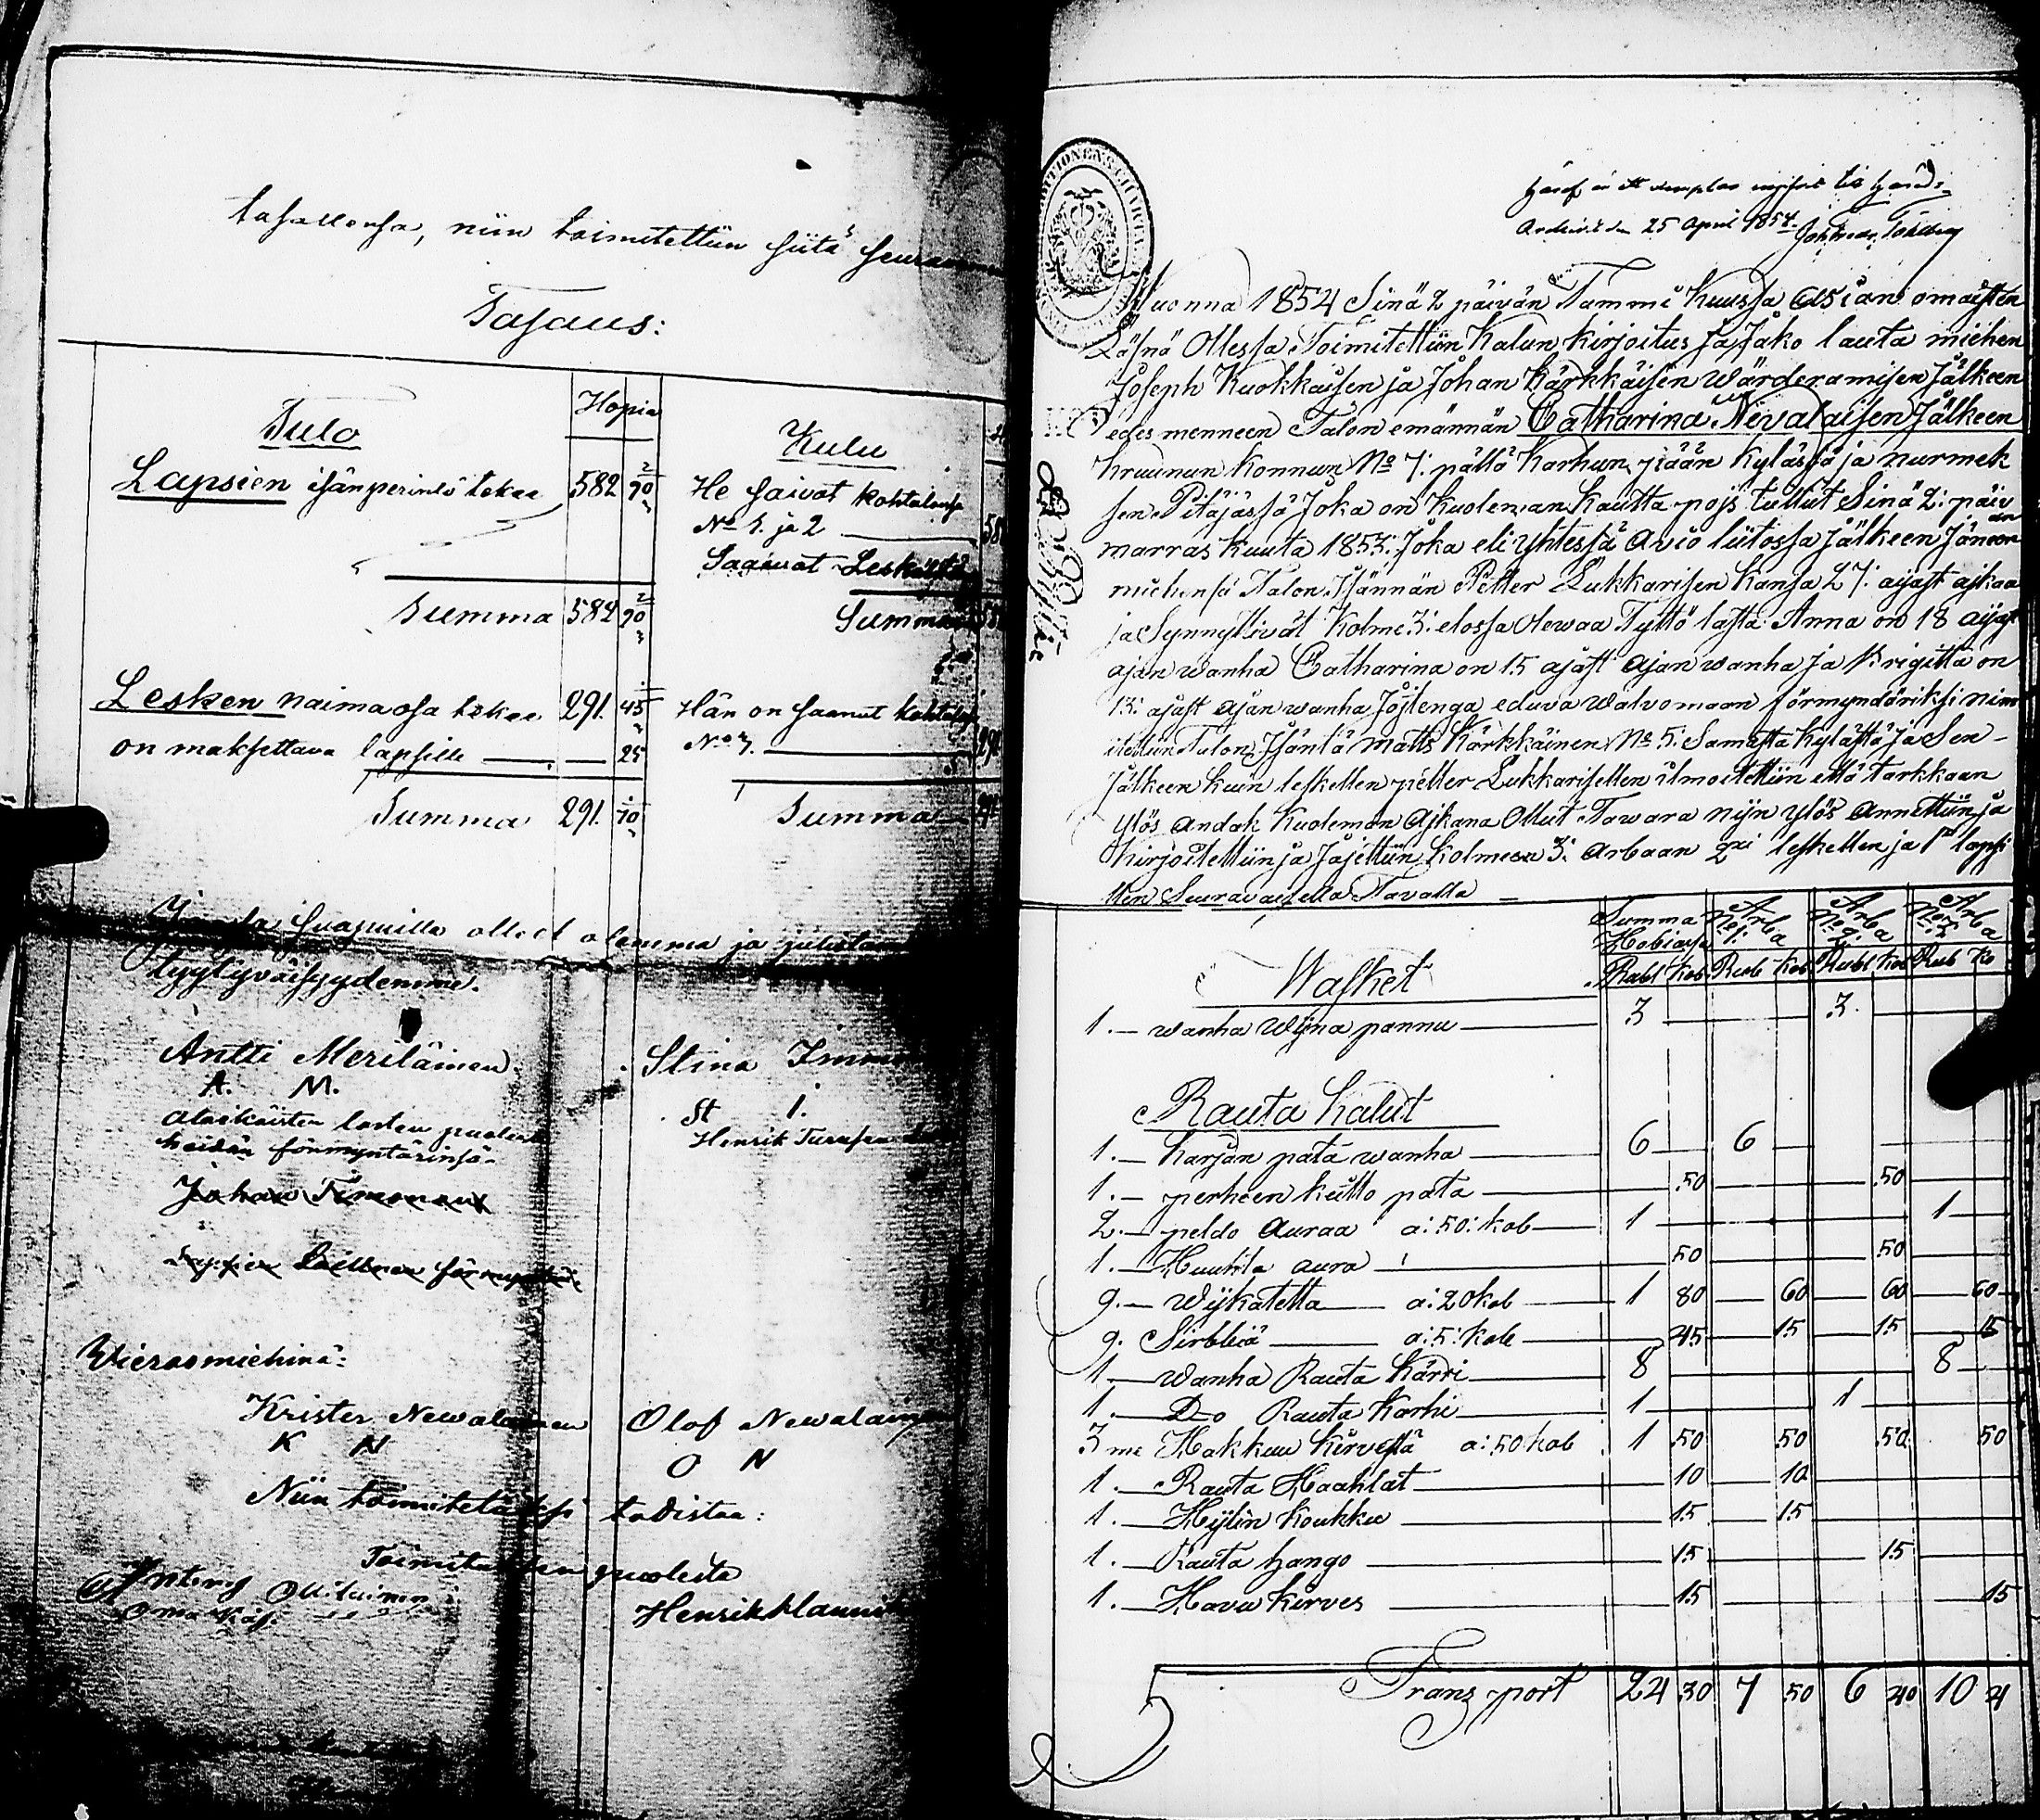 tasallensa, niin toimitettiin siitä
Tasaus:
Tulo Hopia Kulu
Lapsien isänperintö tekee 582 90 2/7 He saivat kohtalonsa
No 1. ja 2
Saavat Leskältä
Summa 582 90 2/7 Summa
Lesken naimaosa tekee 291. 45 1/7 Hän on saanut kohtalosa
on maksettava lapsille 25 No 3.
Summa 291. 70 1/7 Summa
ollect olemma ja
tyytyväisyydemme.
Antti Meriläinen. Stina
A. M. St I.
alaikäisten lasten puolesta Henrik Turusen
heidän förmyntärinsä
Johan Timonen
Vierasmiehinä:
Krister Newalainen Olof Newalainen
K N O N
Niin toimitetuksi todistaa:
Toimituksen puolesta
Oma käs. Henrik
CHARTA
Arckivit den 25 April 1854.
Wuonna 1854 Sinä 2 päivän Tammi Kuussa Asian omaisten
Läsnä Ollessa Toimitettiin Kalun kirjoitus ja Jako lauta miehen
Joseph Kuokkaisen ja Johan Kärkkäisen Wärderamisen Jälkeen
edes menneen Talon emännän Catharina Nevalaisen Jälkeen
Kruunun Konnun No 7: pältä Karhun pään Kylässä ja nurmek
sen Pitäjässä Joka on Kuoleman Kautta pojs tullut Sinä 2: päiv
än
marras Kuuta 1853: Joka eli Yhtessä Avio liitossa Jälkeen Jäneen
miehensä Talon Isännän Petter Lukkarisen Kansa 27: ajast ajkaa
ja Synnyttivät Kolme 3: elossa Olewaa Tyttö lasta Anna on 18 ajast
ajan wanha Catharina on 15 ajast ajan wanha Ja Brigitta on
13: ajast ajan wanha Jojtenga eduva walvomaan förmyndäriksi nim
itettiin Talon Isäntä Matts Kärkkäinen No 5: Samasta Kylästä Ja Sen-
Jälkeen Kuin leskellen petter Lukkarisellen ilmoitettiin että tarkkaan
Ylös Andak Kuoleman Ajkana Ollut Tawara nijn ylös Annettiin ja
Kirjoitettiin ja Jajettiin Kolmeen 3: Arbaan 2xi leskellen ja 1 lapsi
llen Seuravaisella Tavalla
Summa Arba Arba Arba
Hobiassa No 1: No 2: No 3
Rubl Kob Rub Kob Rubl Kob Rub Ko
Wasket
1. wanha Wijna pannu 3 3.
Rauta Kalut
1. Karjan pata wanha 6 6
1. perheen keitto pata 50 50
2. peldo auraa a: 50: kob 1 1
1. Huuhta aura 50 50
9. Wijkatetta a: 20 kob 1 80 60 60 60
9. Sirbbiä a: 5: kob 45 15 15 15
1. Wanha Rauta Kärri 8 8
1. Do Rauta Karhi 1 1
3 me Hakkuu kirvestä a: 50 kob 1 50 50 50 50
1. Rauta Haahlat 10 10
1. Hijlin Koukku 15 15
1. Rauta hango 15 15
1. Havu Kirves 15 15
Transport 24 30 7 50 6 40 10 4